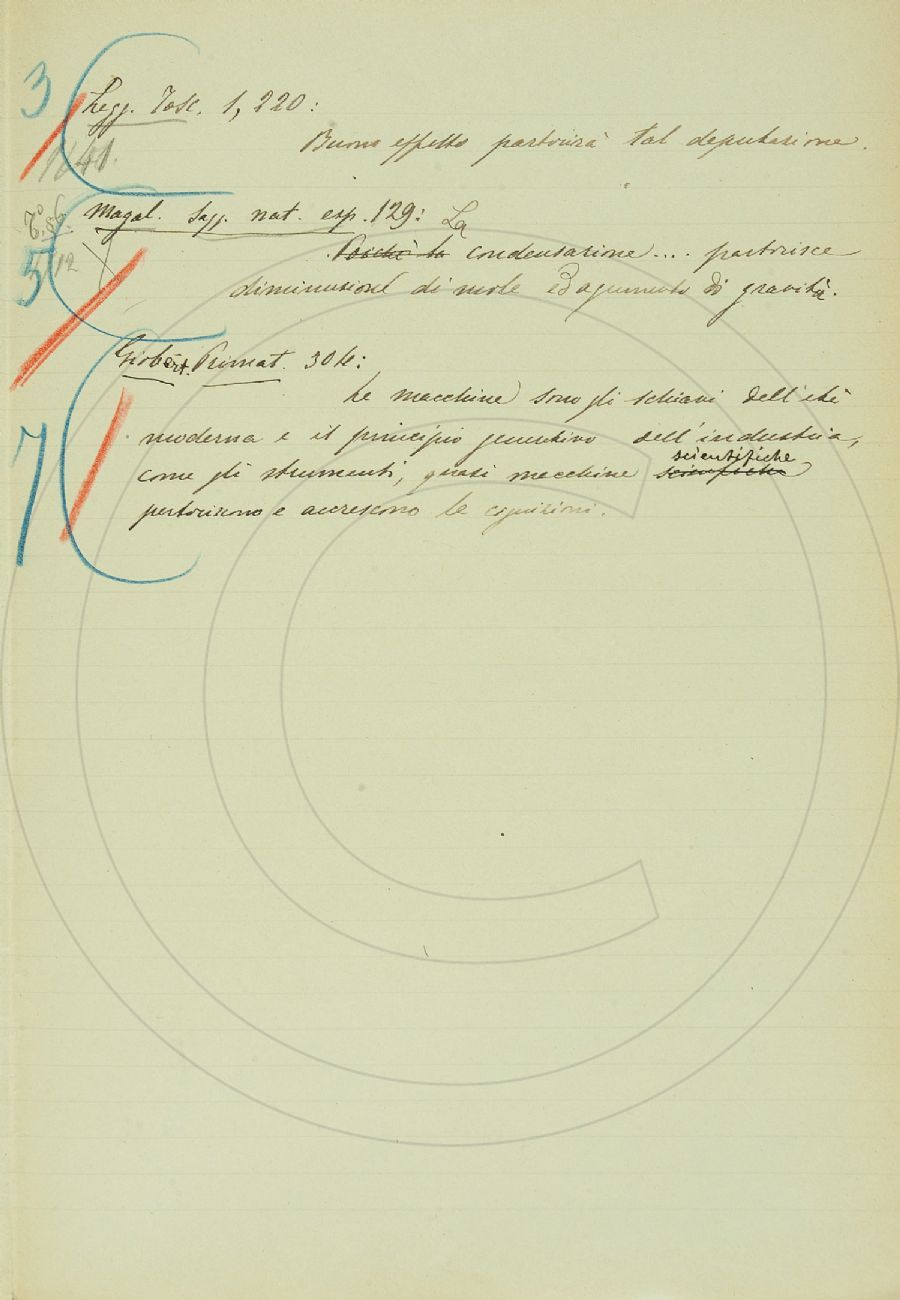 3
Legg. Tosc. 1, 220:
1841.
Buono effetto partorirà tal deputazione.
Magal. Sagg. nat. esp. 129: La
Poichè la condensazione.... partorisce
5
12
diminuzione di mole ed agumento di gravità.
Giobert. Primat. 304:
Le macchine sono gli schiavi dell'età
7
moderna e il principio genitivo dell'industria,
scientifiche
come gli strumenti, quasi macchine
partoriscono e accrescono le cognizioni.